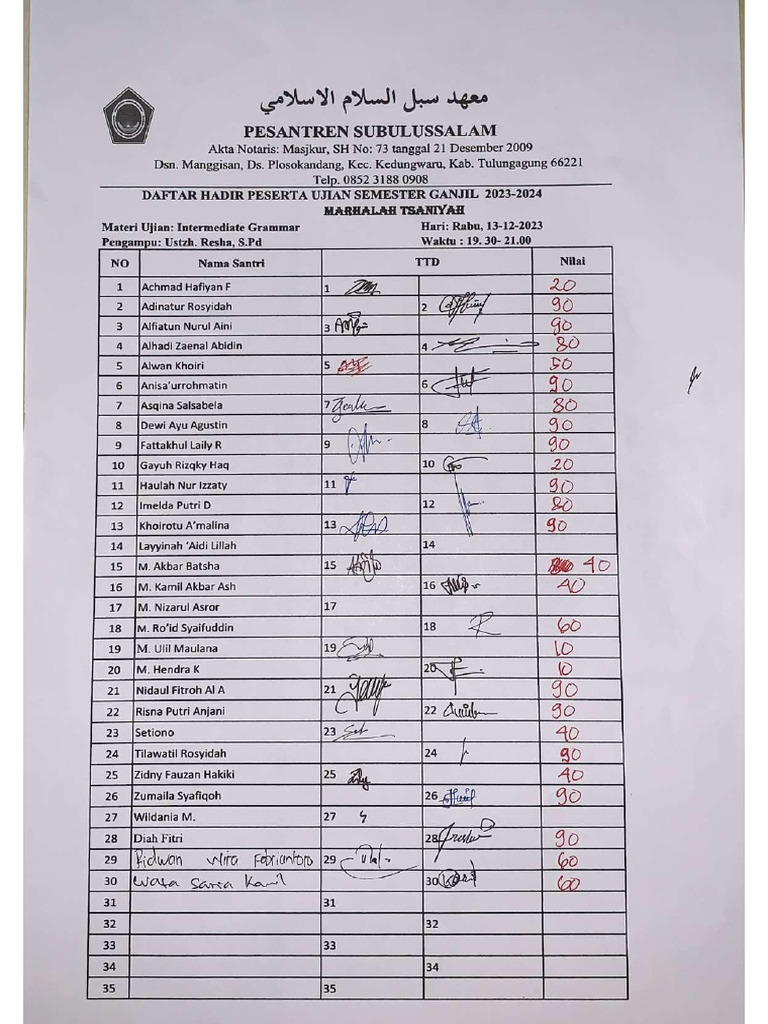 معهد سبل السلام الاسلامي
PESANTREN SUBULUSSALAM
Akta Notaris: Masjkur, SH No: 73 tanggal 21 Desember 2009
Dsn. Manggisan, Ds. Plosokandang, Kec. Kedungwaru, Kab. Tulungagung 66221
Telp. 0852 3188 0908
DAFTAR HADIR PESERTA UJIAN SEMESTER GANJIL 2023-2024
MARHALAH TSANIYAH
Materi Ujian: Intermediate Grammar Hari: Rabu, 13-12-2023
Pengampu: Ustzh. Resha, S.Pd Waktu : 19. 30- 21.00
NO Nama Santri TTD Nilai
1 Achmad Hafiyan F 1 20
2 Adinatur Rosyidah 2 90
3 Alfiatun Nurul Aini 3 90
4 Alhadi Zaenal Abidin 4 80
5 Alwan Khoiri 5 50
6 Anisa'urrohmatin 6 90
7 Asqina Salsabela 7 80
8 Dewi Ayu Agustin 8 90
9 Fattakhul Laily R 9 90
10 Gayuh Rizqky Haq 10 20
11 Haulah Nur Izzaty 11 90
12 Imelda Putri D 12 80
13 Khoirotu A'malina 13 90
14 Layyinah 'Aidi Lillah 14
15 M. Akbar Batsha 15 40
16 M. Kamil Akbar Ash 16 40
17 M. Nizarul Asror 17
18 M. Ro'id Syaifuddin 18 60
19 M. Ulil Maulana 19 10
20 M. Hendra K 20 10
21 Nidaul Fitroh Al A 21 90
22 Risna Putri Anjani 22 90
23 Setiono 23 40
24 Tilawatil Rosyidah 24 90
25 Zidny Fauzan Hakiki 25 40
26 Zumaila Syafiqoh 26 90
27 Wildania M. 27
28 Diah Fitri 28 90
29 Ridwan Wira Febriantoro 29 60
30 Kamil 30 60
31 31
32 32
33 33
34 34
35 35